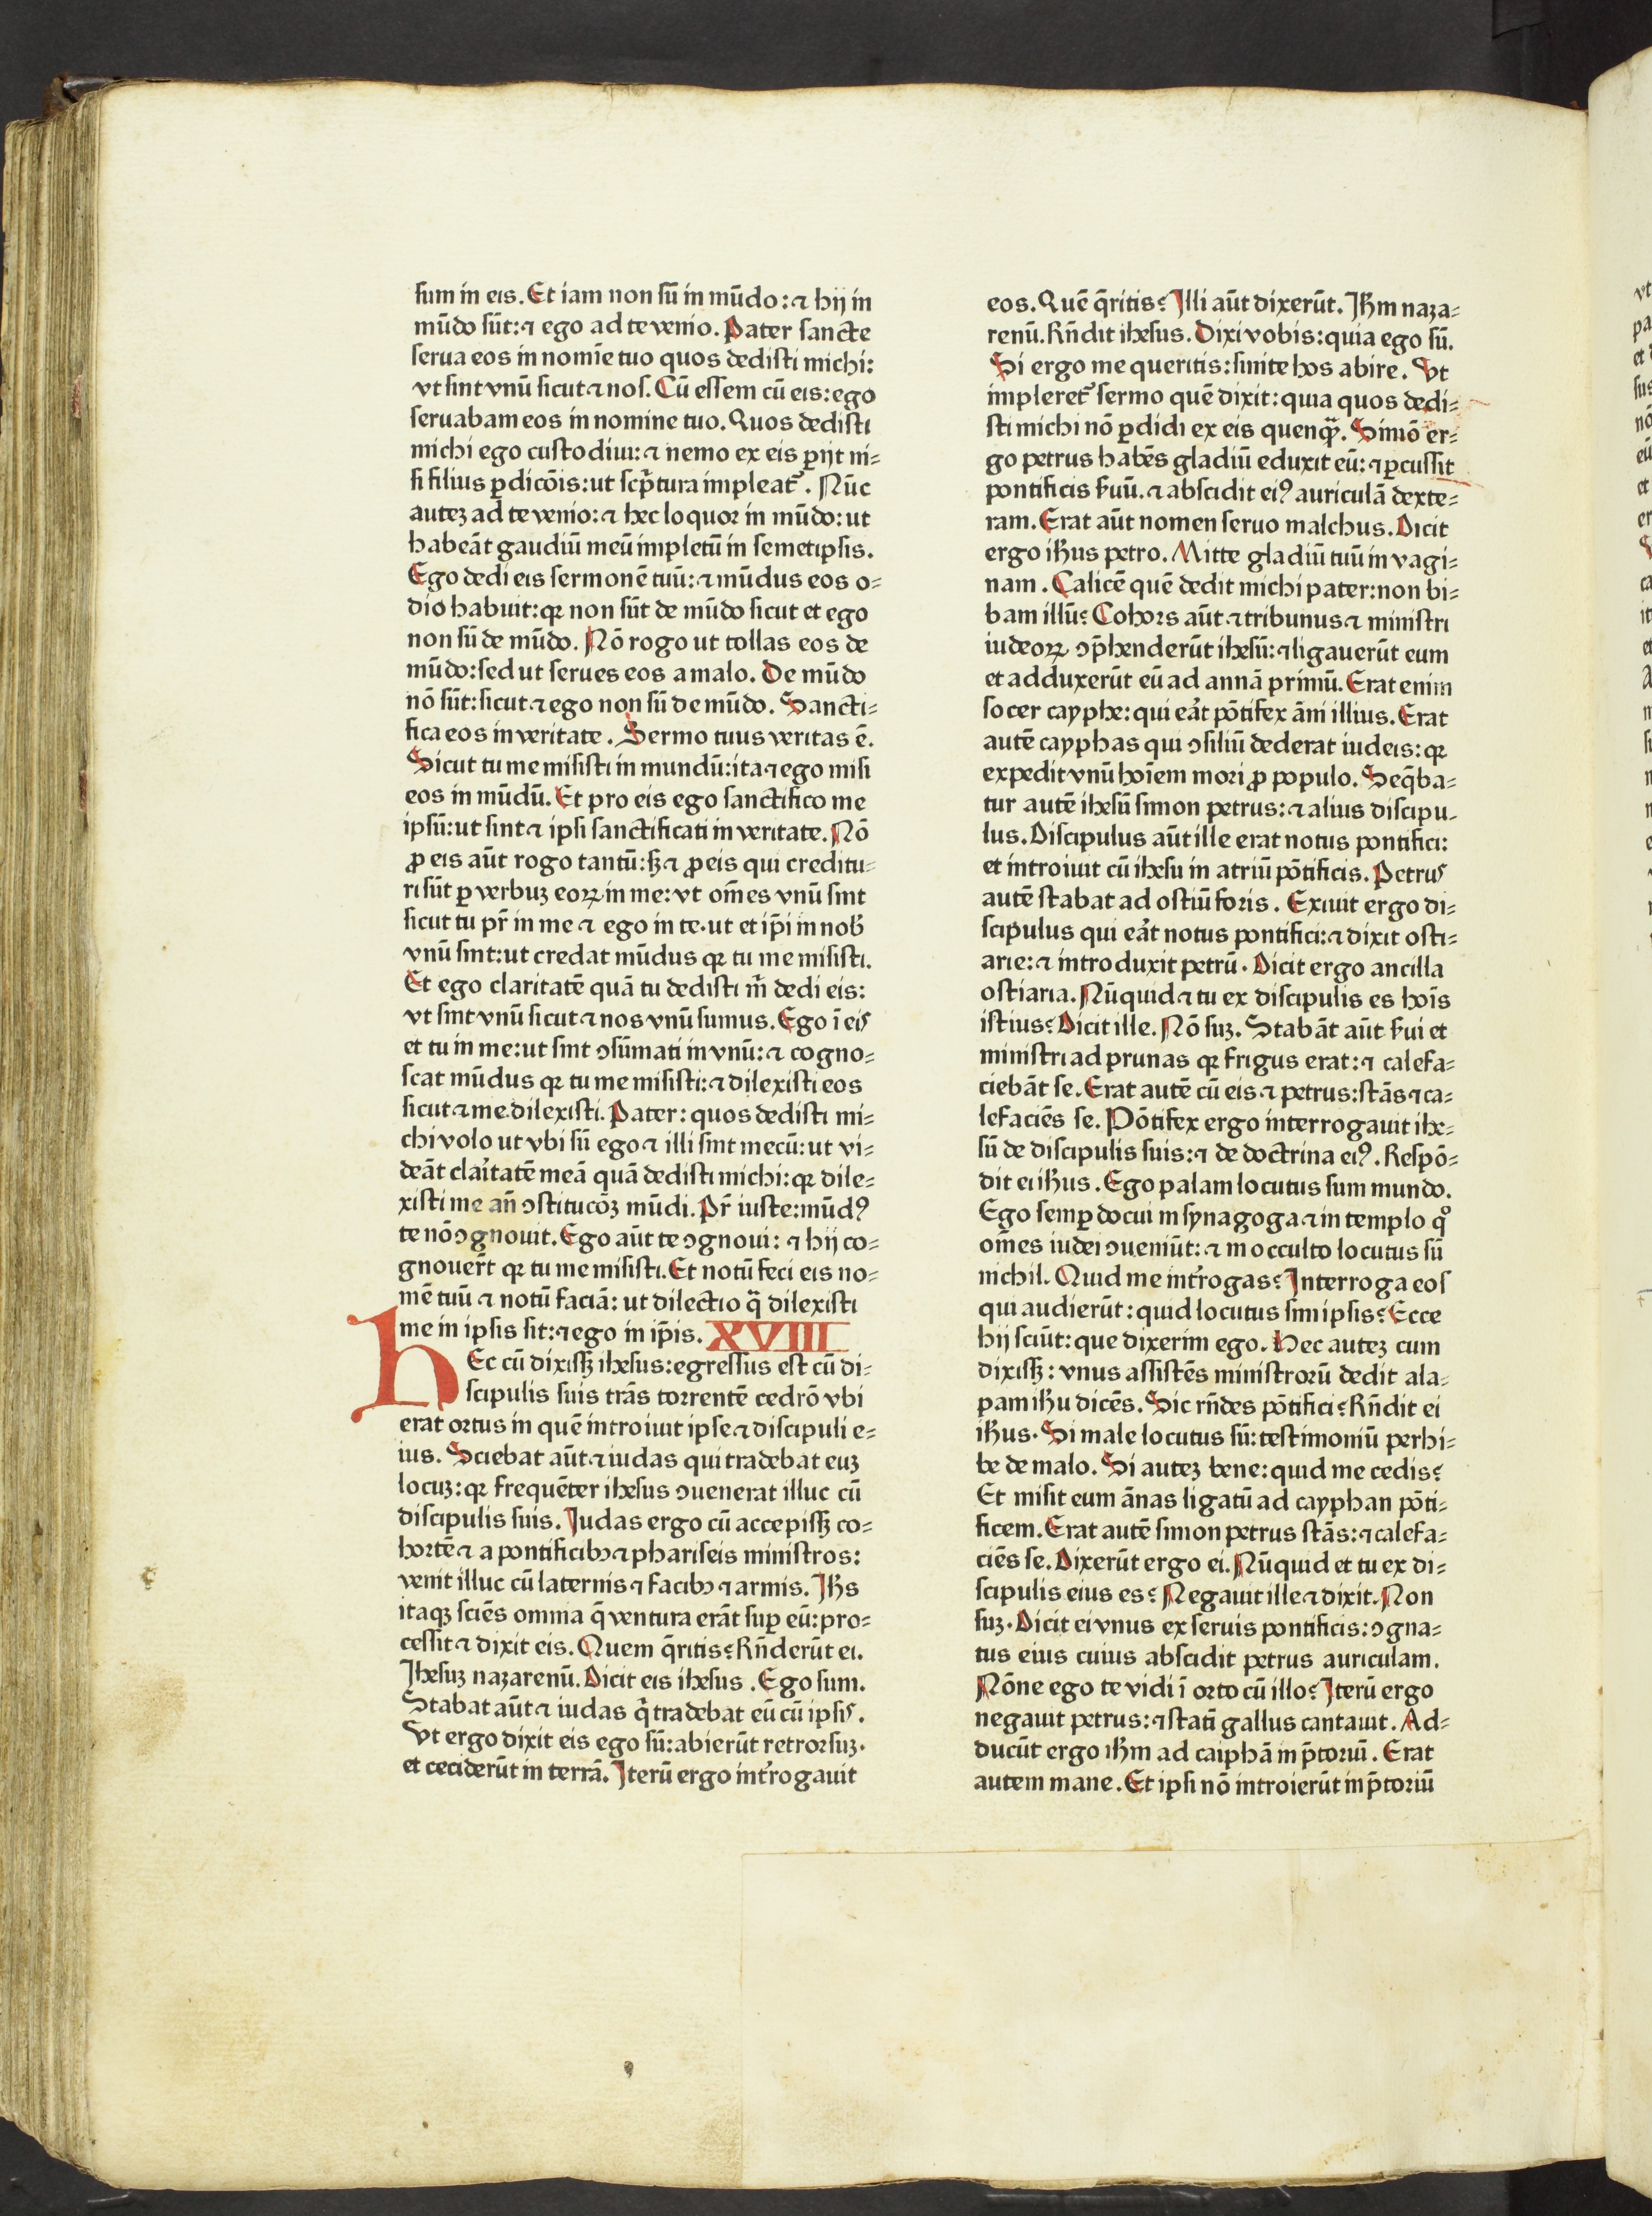 sum in eis. Et iam non sū in mūdo: ⁊ hij in
mūdo sūt: ⁊ ego ad te venio. Pater sancte
serua eos in nomīe tuo quos dedisti michi:
vt sint vnū sicut ⁊ nos. Cū essem cū eis: ego
seruabam eos in nomine tuo. Quos dedisti
michi ego custodiui: ⁊ nemo ex eis ꝑijt ni⸗
si filius ꝑdicōis: ut scp̄tura impleat᷑. Nūc
autez ad te venio: ⁊ hec loquor in mūdo: ut
habeāt gaudiū meū impletū in semetipsis.
Ego dedi eis sermonē tuū: ⁊ mūdus eos o⸗
dio habuit: qꝛ non sūt de mūdo sicut et ego
non sū de mūdo. Nō rogo ut tollas eos de
mūdo: sed ut serues eos a malo. De mūdo
nō sūt: sicut ⁊ ego non sū de mūdo. Sancti⸗
fica eos in veritate. Sermo tuus veritas ē.
Sicut tu me misisti in mundū: ita ⁊ ego misi
eos in mūdū. Et pro eis ego sanctifico me
ipsū: ut sint ⁊ ipsi sanctificati in veritate. Nō
ꝓ eis aūt rogo tantū: sꝫ ⁊ ꝓ eis qui creditu⸗
ri sūt ꝑ verbuz eoꝝ in me: vt om̄es vnū sint
sicut tu pr̄ in me ⁊ ego in te. ut et ip̄i in nob̄
vnū sint: ut credat mūdus qꝛ tu me misisti.
Et ego claritatē quā tu dedisti m̄ dedi eis:
vt sint vnū sicut ⁊ nos vnū sumus. Ego ī eis
et tu in me: ut sint ꝯsūmati in vnū: ⁊ cogno⸗
scat mūdus qꝛ tu me misisti: ⁊ dilexisti eos
sicut ⁊ me dilexisti. Pater: quos dedisti mi⸗
chi volo ut vbi sū ego ⁊ illi sint mecū: ut vi⸗
deāt clar̄itatē meā quā dedisti michi: qꝛ dile⸗
xisti me an̄ ꝯstitucōꝫ mūdi. Pr̄ iuste: mūdꝰ
te nō ꝯgnouit. Ego aūt te ꝯgnoui: ⁊ hij co⸗
gnouer̄t qꝛ tu me misisti. Et notū feci eis no⸗
mē tuū ⁊ notū faciā: ut dilectio q̄ dilexisti
me in ipsis sit: ⁊ ego in ip̄is. XVIII
HEc cū dixissꝫ ihesus: egressus est cū di⸗
scipulis suis trās torrentē cedrō vbi
erat ortus in quē introiuit ipse ⁊ discipuli e⸗
ius. Sciebat aūt ⁊ iudas qui tradebat euz
locuz: qꝛ frequēter ihesus ꝯuenerat illuc cū
discipulis suis. Judas ergo cū accepissꝫ co⸗
hortē ⁊ a pontificibꝫ ⁊ phariseis ministros:
venit illuc cū laternis ⁊ facibꝫ ⁊ armis. Jħs
itaqꝫ sciēs omnia q̄ ventura erāt suꝑ eū: pro⸗
cessit ⁊ dixit eis. Quem q̄ritis? Rn̄derūt ei.
Jhesuz nazarenū. Dicit eis ihesus. Ego sum.
Stabat aūt ⁊ iudas q̄ tradebat eū cū ipsis.
Vt ergo dixit eis ego sū: abierūt retrorsuz.
et ceciderūt in terrā. Jterū ergo int̄rogauit
eos. Quē q̄ritis? Jlli aūt dixerūt. Jħm naza⸗
renū. Rn̄dit ihesus. Dixi vobis: quia ego sū.
Si ergo me queritis: sinite hos abire. Vt
impleret᷑ sermo quē dixit: quia quos dedi⸗
sti michi nō ꝑdidi ex eis quenqꝫ̄. Simō er⸗
go petrus habēs gladiū eduxit eū: ⁊ ꝑcussit
pontificis ẜuū. ⁊ abscidit eiꝰ auriculā dexte⸗
ram. Erat aūt nomen seruo malchus. Dicit
ergo iħus petro. Mitte gladiū tuū in vagi⸗
nam. Calicē quē dedit michi pater: non bi⸗
bam illū? Cohors aūt ⁊ tribunus ⁊ ministri
iudeoꝝ ꝯp̄henderūt ihesū: ⁊ ligauerūt eum
et adduxerūt eū ad annā primū. Erat enim
socer cayphe: qui eāt pōtifex āni illius. Erat
autē cayphas qui ꝯsiliū dederat iudeis: qꝛ
expedit vnū hoīem mori ꝓ populo. Seq̄ba⸗
tur autē ihesū simon petrus: ⁊ alius discipu⸗
lus. Discipulus aūt ille erat notus pontifici:
et introiuit cū ihesu in atriū pōtificis. Petrus
autē stabat ad ostiū foris. Exiuit ergo di⸗
scipulus qui eāt notus pontifici: ⁊ dixit osti⸗
arie: ⁊ introduxit petrū. Dicit ergo ancilla
ostiaria. Nūquid ⁊ tu ex discipulis es hoīs
istius? Dicit ille. Nō suz. Stabāt aūt ẜui et
ministri ad prunas qꝛ frigus erat: ⁊ calefa⸗
ciebāt se. Erat autē cū eis ⁊ petrus: stās ⁊ ca⸗
lefaciēs se. Pōtifex ergo interrogauit ihe⸗
sū de discipulis suis: ⁊ de doctrina eiꝰ. Respō⸗
dit ei iħus. Ego palam locutus sum mundo.
Ego semꝑ docui in synagoga ⁊ in templo qͦ
om̄es iudei ꝯueniūt: ⁊ in occulto locutus sū
nichil. Quid me int̄rogas? Jnterroga eos
qui audierūt: quid locutus sim ipsis? Ecce
hij sciūt: que dixerim ego. Hec autez cum
dixissꝫ: vnus assistēs ministrorū dedit ala⸗
pam iħu dicēs. Sic rn̄des pōtifici? Rn̄dit ei
iħus. Si male locutus sū: testimoniū perhi⸗
be de malo. Si autez bene: quid me cedis?
Et misit eum ānas ligatū ad cayphan pōti⸗
ficem. Erat autē simon petrus stās: ⁊ calefa⸗
ciēs se. Dixerūt ergo ei. Nūquid et tu ex di⸗
scipulis eius es? Negauit ille ⁊ dixit. Non
suz. Dicit ei vnus ex seruis pontificis: ꝯgna⸗
tus eius cuius abscidit petrus auriculam.
Nōne ego te vidi ī orto cū illo? Jterū ergo
negauit petrus: ⁊ statī gallus cantauit. Ad⸗
ducūt ergo iħm ad caiphā in p̄toriū. Erat
autem mane. Et ipsi nō introierūt in p̄toriū